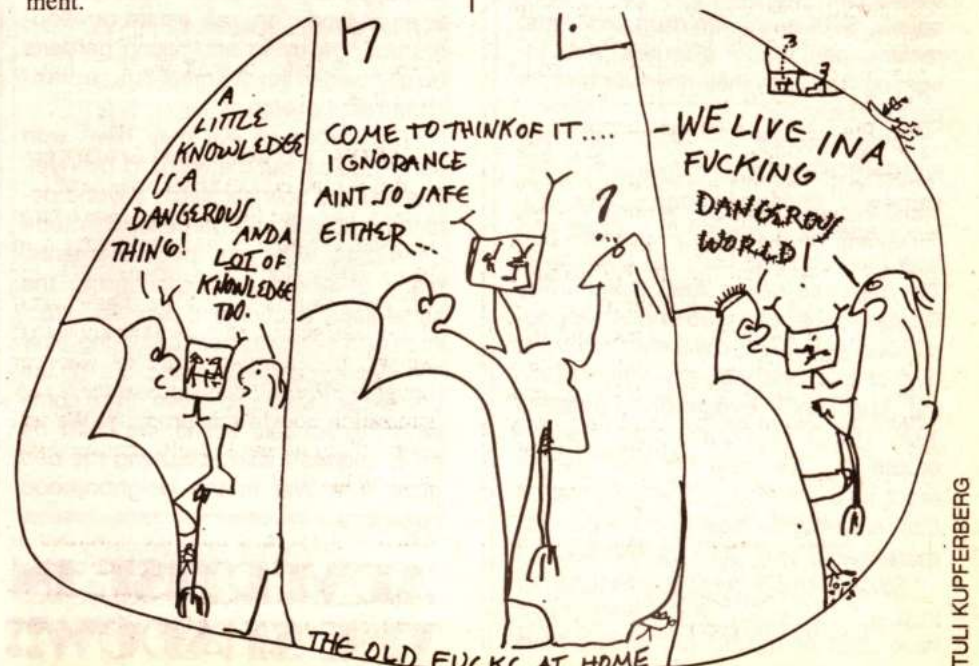 ment.
A
LITTLE
KNOWLEDGE
IS A
DANGEROUS
THING!
AND A
LOT OF
KNOWLEDGE
TOO.
COME TO THINK OF IT....
IGNORANCE
AINT SO SAFE
EITHER...
?
...
- WE LIVE IN A
FUCKING
DANGEROUS
WORLD!
THE OLD FUCKS AT HOME
TULI KUPFERBERG